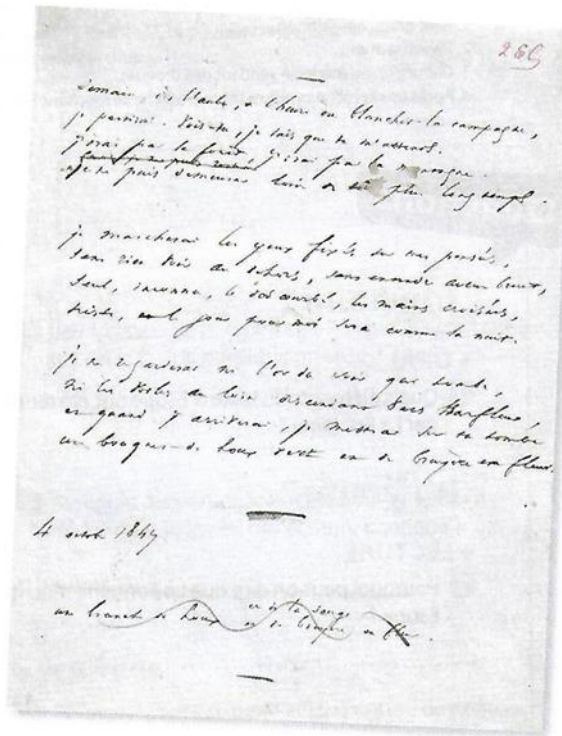 Demain, dès l'aube, à l'heure où blanchit la campagne,
je partirai. Vois-tu, je sais que tu m'attends.
j'irai par la forêt, j'irai par la montagne.
je ne puis demeurer loin de toi plus longtemps.
je marcherai les yeux fixés sur mes pensées,
sans rien voir au dehors, sans entendre aucun bruit,
seul, inconnu, le dos courbé, les mains croisées,
triste, et le jour pour moi sera comme la nuit.
je ne regarderai ni l'or du soir qui tombe,
ni les voiles au loin descendant vers Harfleur,
et quand j'arriverai je mettrai sur ta tombe
un bouquet de houx vert et de bruyère en fleur.
4 octob 1847
de houx
et de bruyère en fleur.